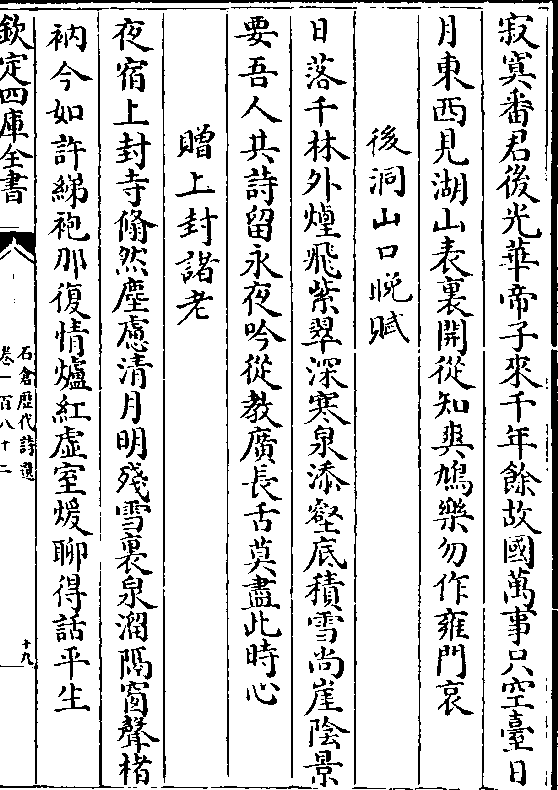 寂寞番君後光華帝子來千年餘故國萬事只空臺日
月東西見湖山表裏開從知爽鳩樂勿作雍門哀
後洞山口晚賦
日落千林外煙飛紫翠深寒泉添壑底積雪尚崖陰景
要吾人共詩留永夜吟從教廣長舌莫盡此時心
贈上封諸老
夜宿上封寺翛然塵慮清月明殘雪裏泉溜隔窗聲楮
衲今如許綈袍那復情爐紅虛室煖聊得話平生
欽定四庫全書
石倉歷代詩選
卷一百八十二
十九